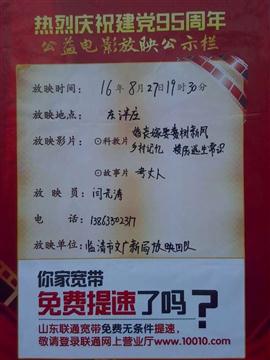 热烈庆祝建党95周年
公益电影放映公示栏
放映时间：16年8月27日19时30分
放映地点：左洋庄
放映影片：⊙科教片
婚丧嫁娶树新风
乡村记忆 楼房逃生常识
⊙故事片 老丈人
放映员：闫元涛
电话：13863502377
放映单位：临清市文广新局放映团队
你家宽带
免费提速了吗？
山东联通宽带免费无条件提速，
敬请登录联通网上营业厅www.10010.com